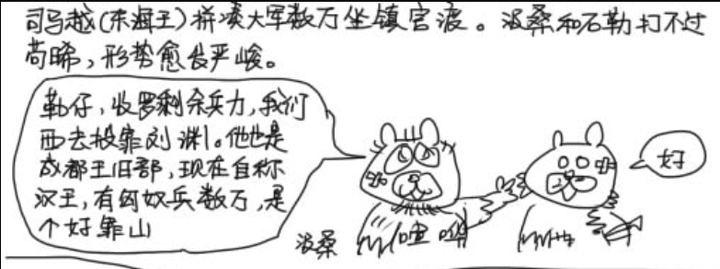 司马越(东海王)拼凑大军数万坐镇官渡。汲桑和石勒打不过
苟晞,形势愈发严峻。
勒仔,收罗剩余兵力,我们
西去投靠刘渊。他也是
成都王旧部,现在自称
汉王,有匈奴兵数万,是
个好靠山
好
汲桑
喧哗